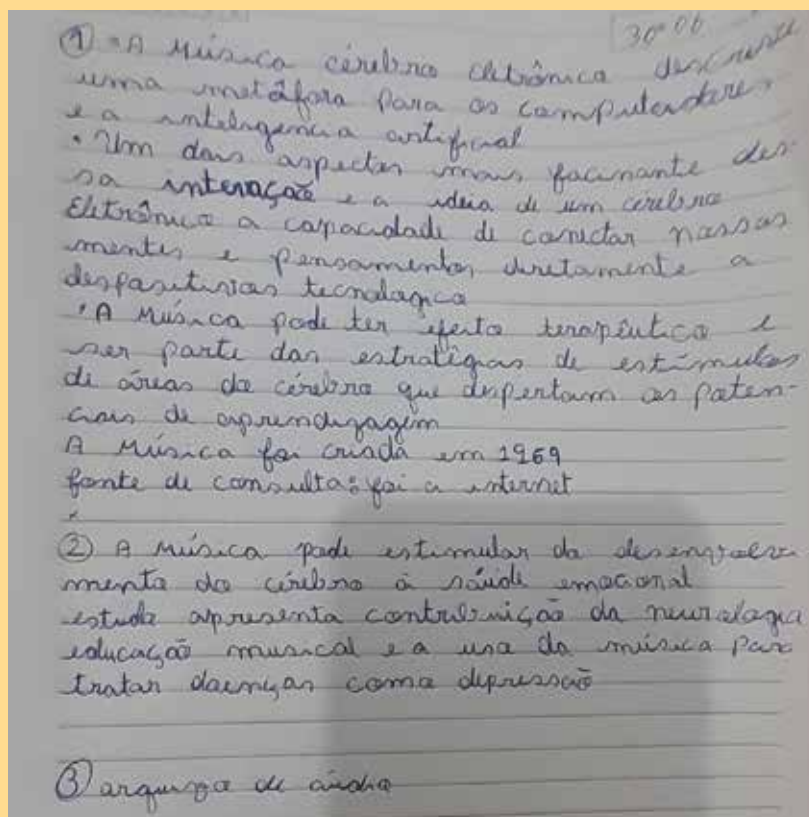 30-06
① • A Música cérebro eletrônico descreve
uma metáfora para os computadores
e a inteligencia artificial
• Um dos aspectos mais facinante des-
sa interação e a ideia de um cérebro
Eletrônico a capacidade de conectar nossas
mentes e pensamentos diretamente a
despositivos tecnologica
• A Música pode ter efeito terapêutico e
ser parte das estratégias de estímulos
de áreas do cérebro que despertam os poten-
ciais de aprendizagem
A Música foi criada em 1969
fonte de consulta: foi a internet
② A Música pode estimular do desenvolvi-
mento do cérebro à saúde emocional
estudo apresenta contribuição da neurologia
educação musical e a uso da música para
tratar doenças como depressão
③ arquivo de áudio